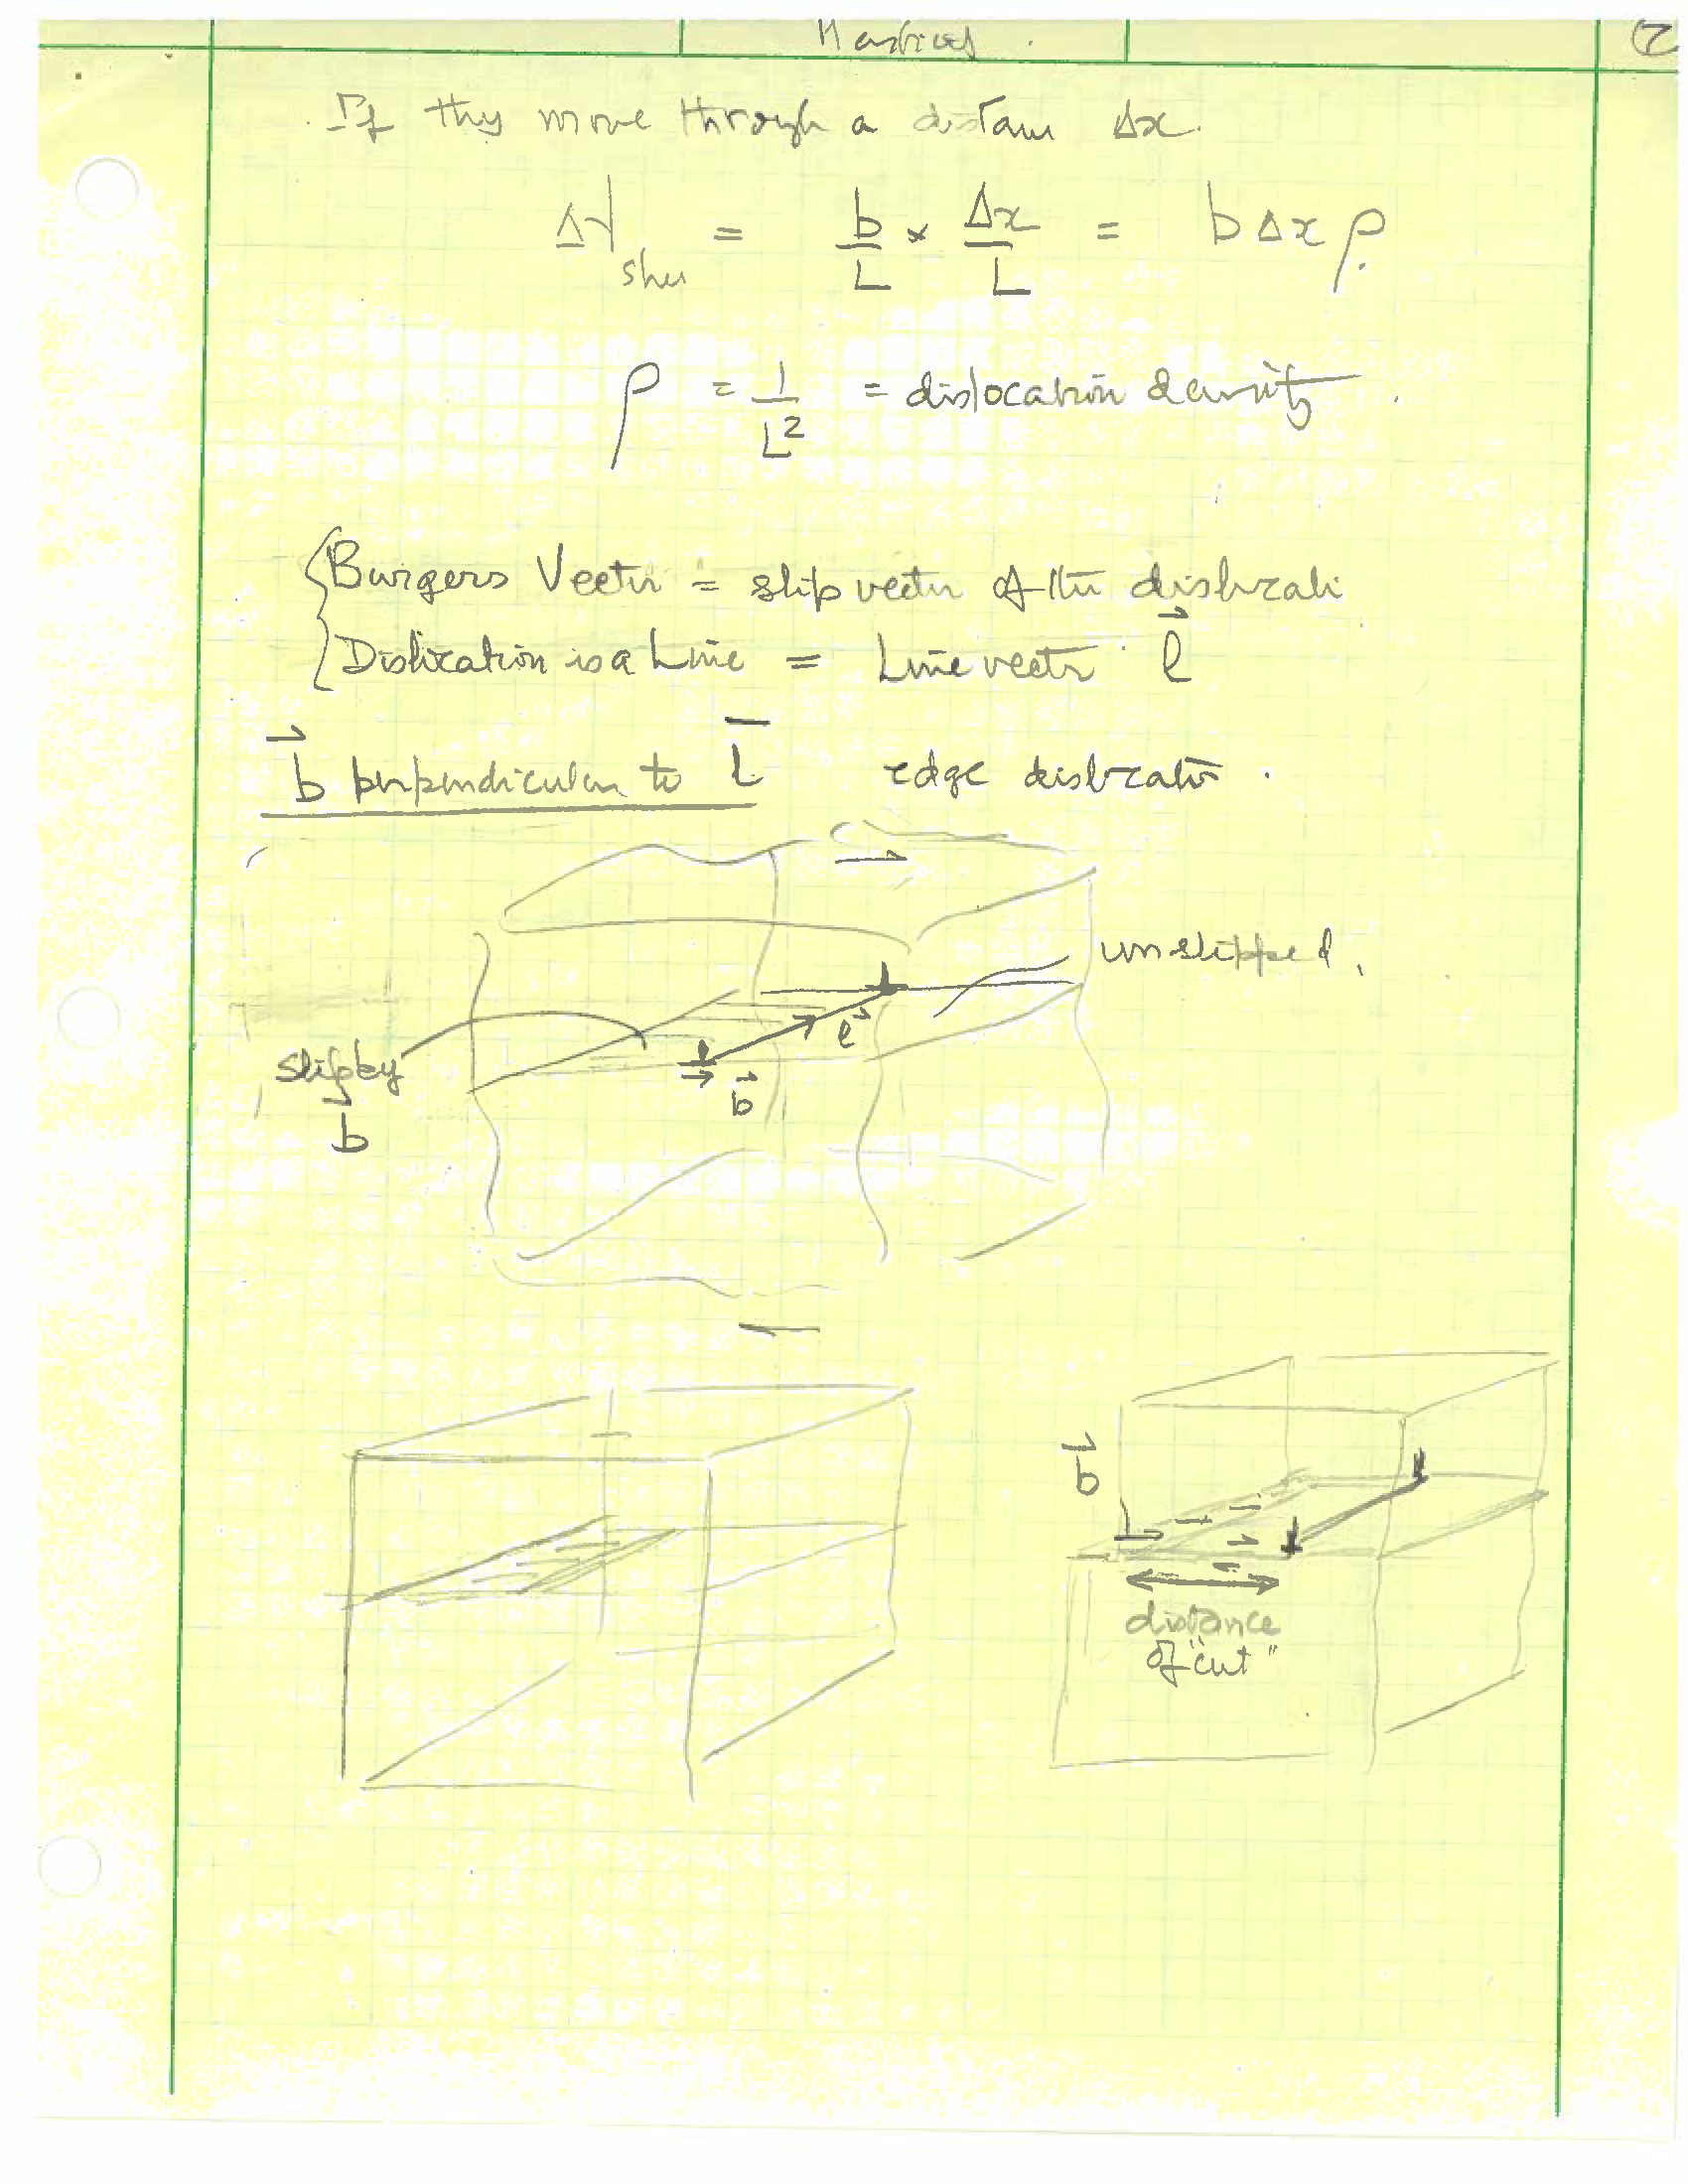 2
If they move through a distance Δx.
Δγ shear = b/L × Δx/L = b Δx ρ.
ρ = 1/L² = dislocation density.
Burgers Vector = slip vector of the dislocation
Dislocation is a Line = Line vector l⃗
b⃗ perpendicular to L̄ edge dislocation.
unslipped.
l⃗
slip by
b⃗
b
b⃗
distance
of "cut"